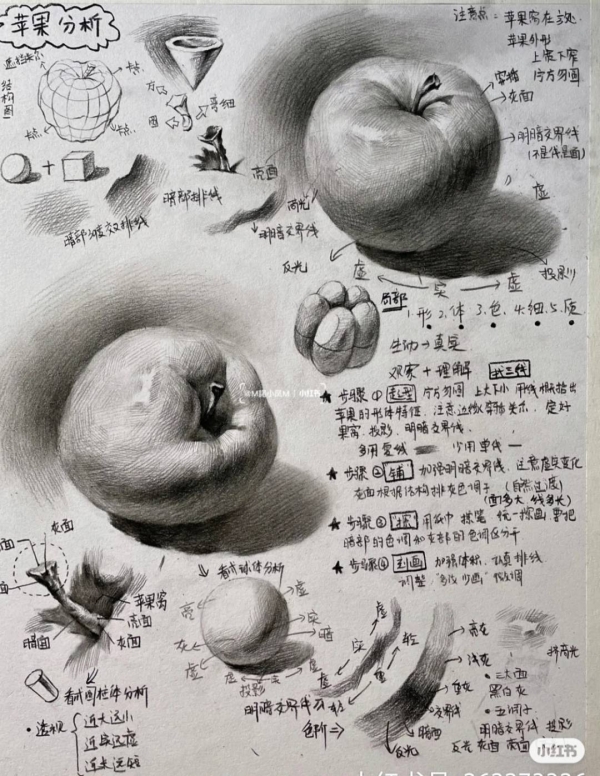 苹果分析
注意点: 苹果窝在3处
苹果外形
上宽下窄
宁方勿圆
结构图
卡点
卡点
卡点
方
圆
灰面
明暗交界线
(不是线是面)
+
暗部排线
亮面
高光
虚
明暗交界线
反光
虚
实
虚
投影
局部
1.形 2.体 3.色 4.细 5.质
生动→真实
观察+理解
★ 步骤① 起型 宁方勿圆 上大下小 用线概括出
苹果的形体特征, 注意边缘穿插关系, 定好
果窝、投影、明暗交界线.
多用虚线 少用单线
★ 步骤② 铺 加强明暗交界线, 注意虚实变化
灰面根据结构排灰色调子 (自然过度)
(面多大 线多长)
★ 步骤③ 揉 用纸巾 擦笔 统一揉画, 要把
暗部的色调和灰部的色调区分开
★ 步骤④ 刻画 加强体积, 认真排线
调整
灰面
苹果窝
亮面
暗面
灰面
看成圆柱体分析
• 透视
近大远小
近实远虚
近长远短
看成球体分析
亮
虚
实
暗
灰
虚
虚
实
虚
投影
明暗交界线
虚
实
轻
重
色阶⇒
亮灰
浅灰
交界线
暗面
反光
擦高光
• 三大面
黑白灰
• 五调子
明暗交界线 投影
反光 灰面 亮面
小红书